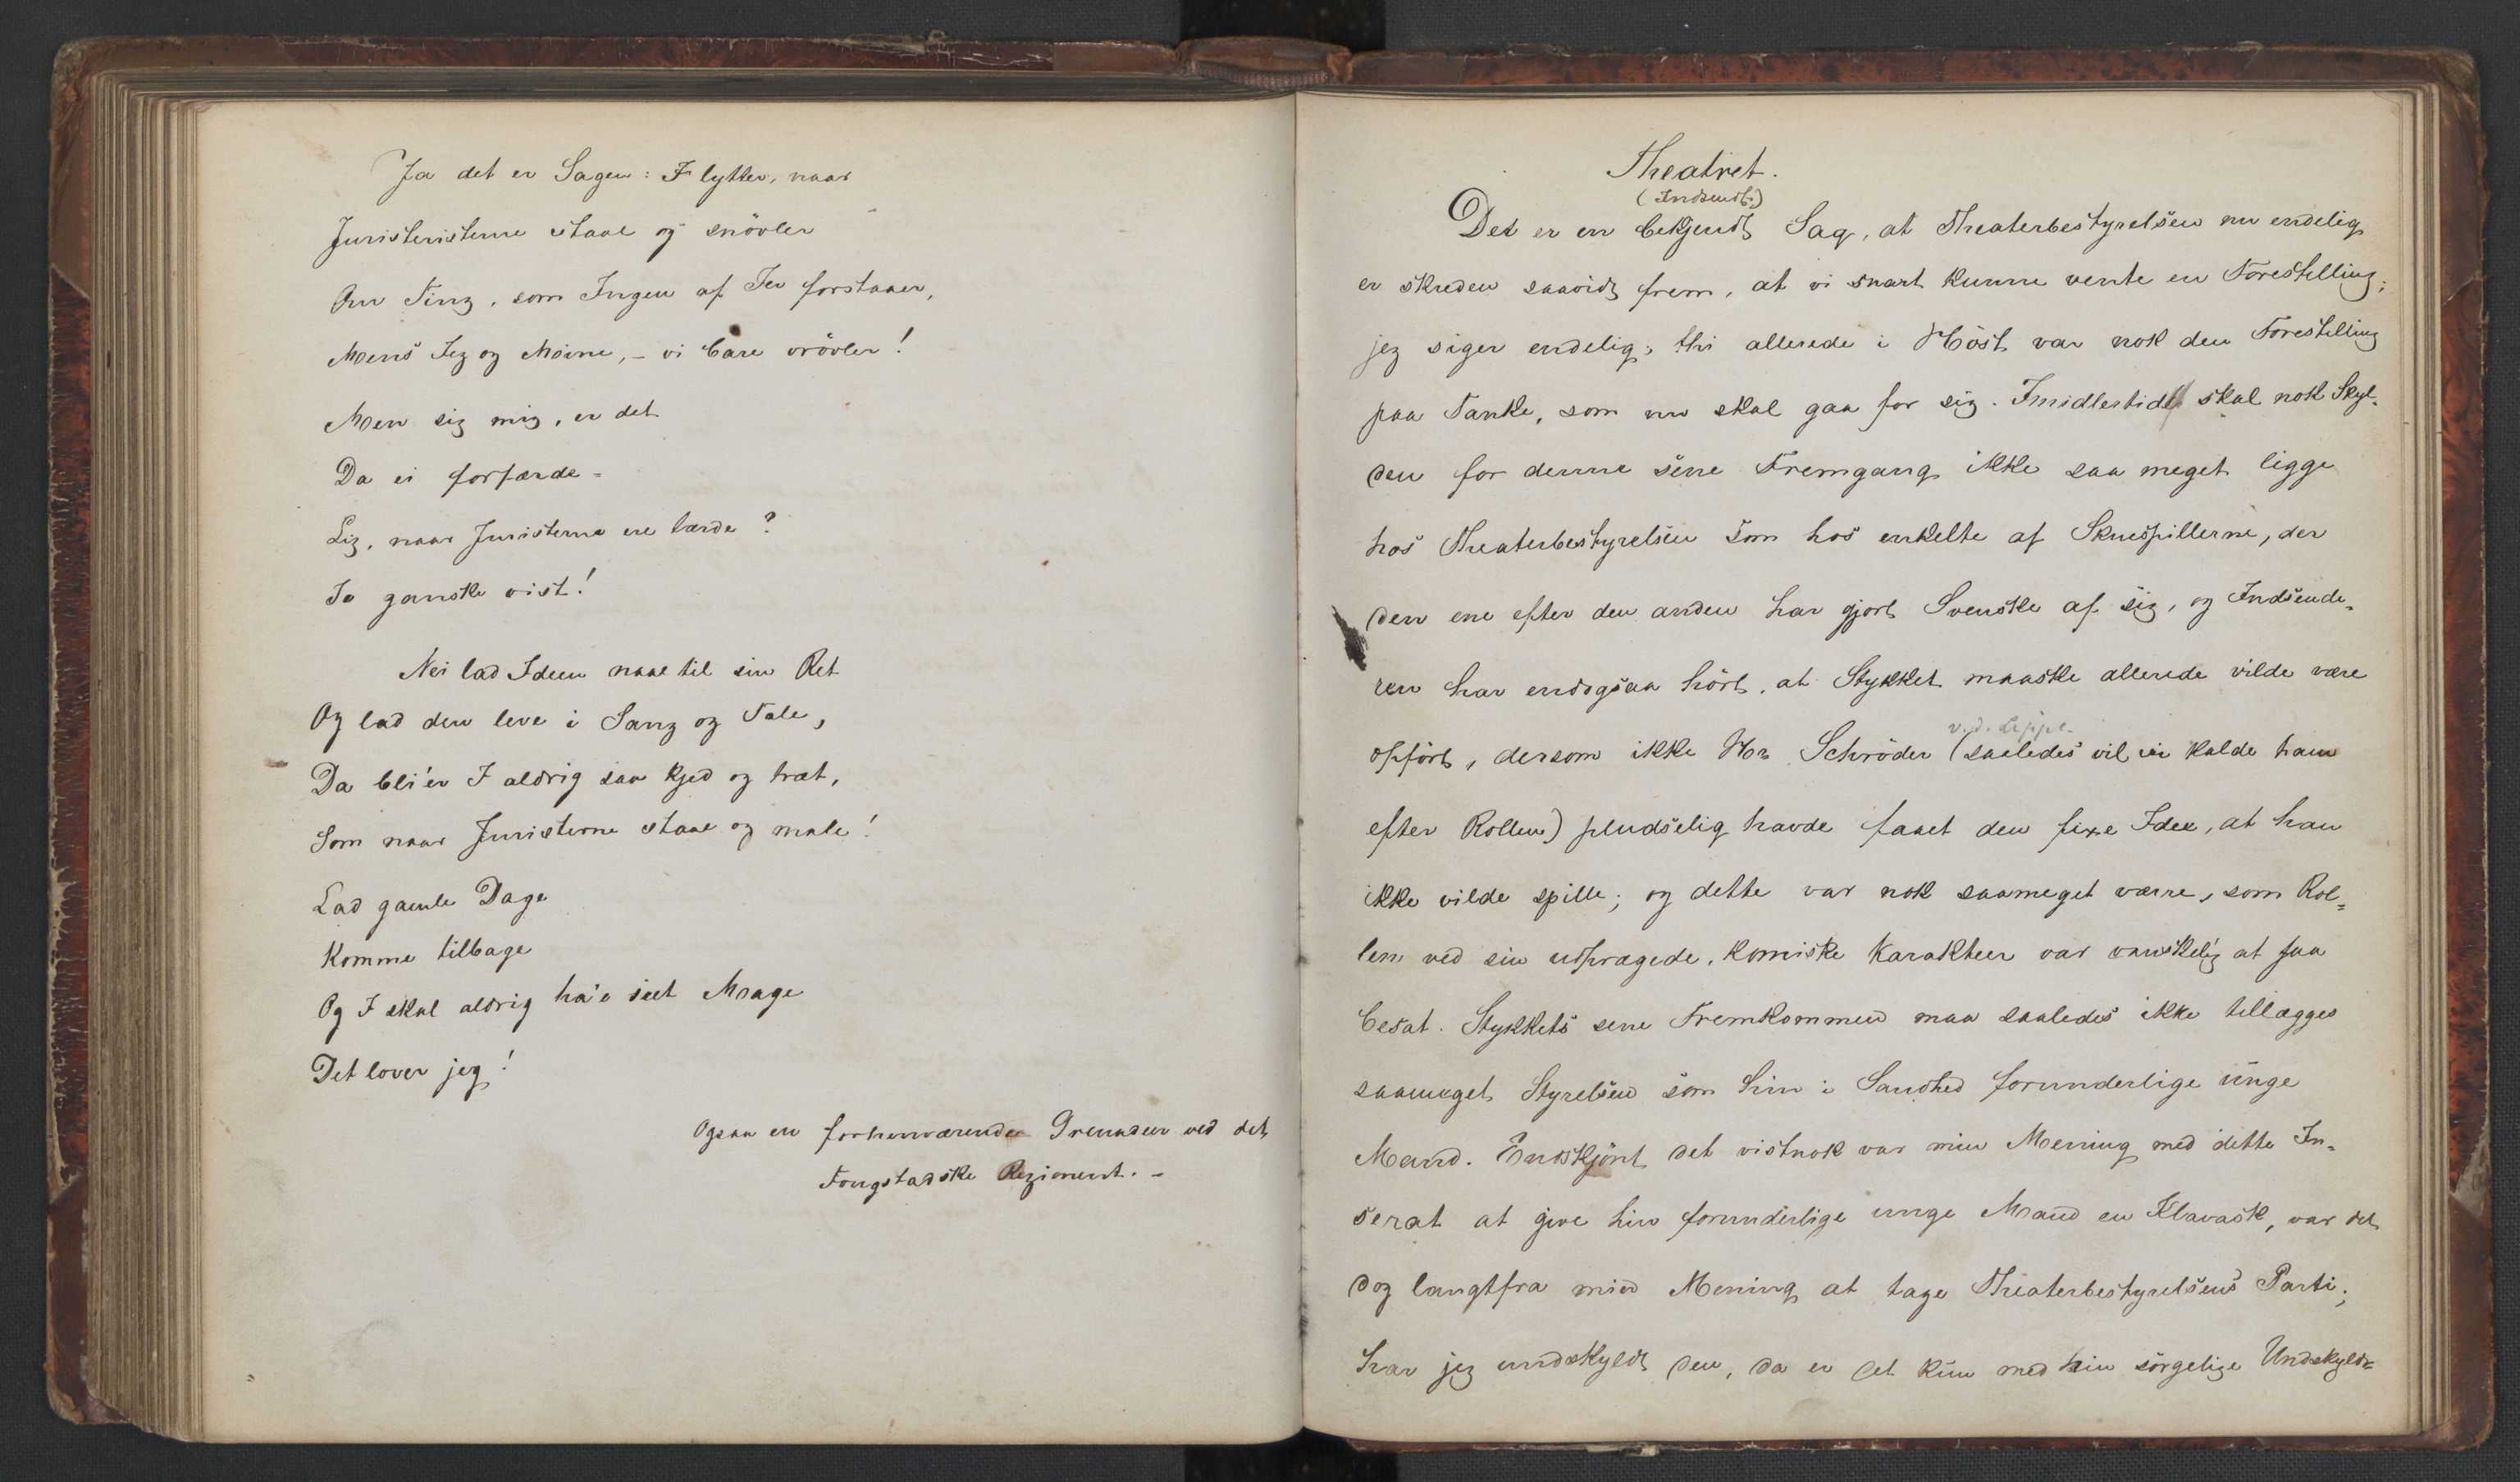 Ja det er Sagen: I lytter, naar
Juristeristerne staae og snövler
Om Ting, som Ingen af Jer forstaaer,
Mens Jeg og Moine, – vi bare vrövler!
Men sig mig, er det
Da ei forfærde-
Lig, naar Juristerne ere lærde?
Jo ganske vist!
Nei lad Ideen naae til sin Ret
Og lad den leve i Sang og Tale,
Da bli'er I aldrig saa kjed og træt,
Som naar Juristerne staae og male!
Lad gamle Dage
Komme tilbage
Og I skal aldrig ha'e seet Mage
Det lover jeg!
Ogsaa en forhenværende Grenadeer ved det
Fougstadske Regiment. –
Theatret.
(Indsendt.)
Det er en bekjendt Sag, at Theaterbestyrelsen nu endelig
er skreden saavidt frem, at vi snart kunne vente en Forestilling;
jeg siger endelig; thi allerede i Höst var nok den Forestilling
paa Tanke, som nu skal gaa for sig. Imidlertid skal nok Skyl-
den for denne sene Fremgang ikke saa meget ligge
hos Theaterbestyrelsen som hos enkelte af Skuespillerne, der
den ene efter den anden har gjort Svenske af sig, og Indsende-
ren har endogsaa hört, at Stykket maaske allerede vilde være
v. d. Lippe
opfört, dersom ikke Hr Schröder (saaledes vil vi kalde ham
efter Rollen) pludselig havde faaet den fixe Idee, at han
ikke vilde spille; og dette var nok saameget værre, som Rol-
len ved sin udprægede, komiske Karakteer var vanskelig at faa
besat. Stykkets sene Fremkommen maa saaledes ikke tillægges
saameget Styrelsen som hin i Sandhed forunderlige unge
Mand. Endskjönt det vistnok var min Mening med dette In-
serat at give hin forunderlige unge Mand en Klavask, var det
dog langtfra min Mening at tage Theaterbestyrelsens Parti;
har jeg undskyldt den, da er det kun med hin sörgelige Undskyld-